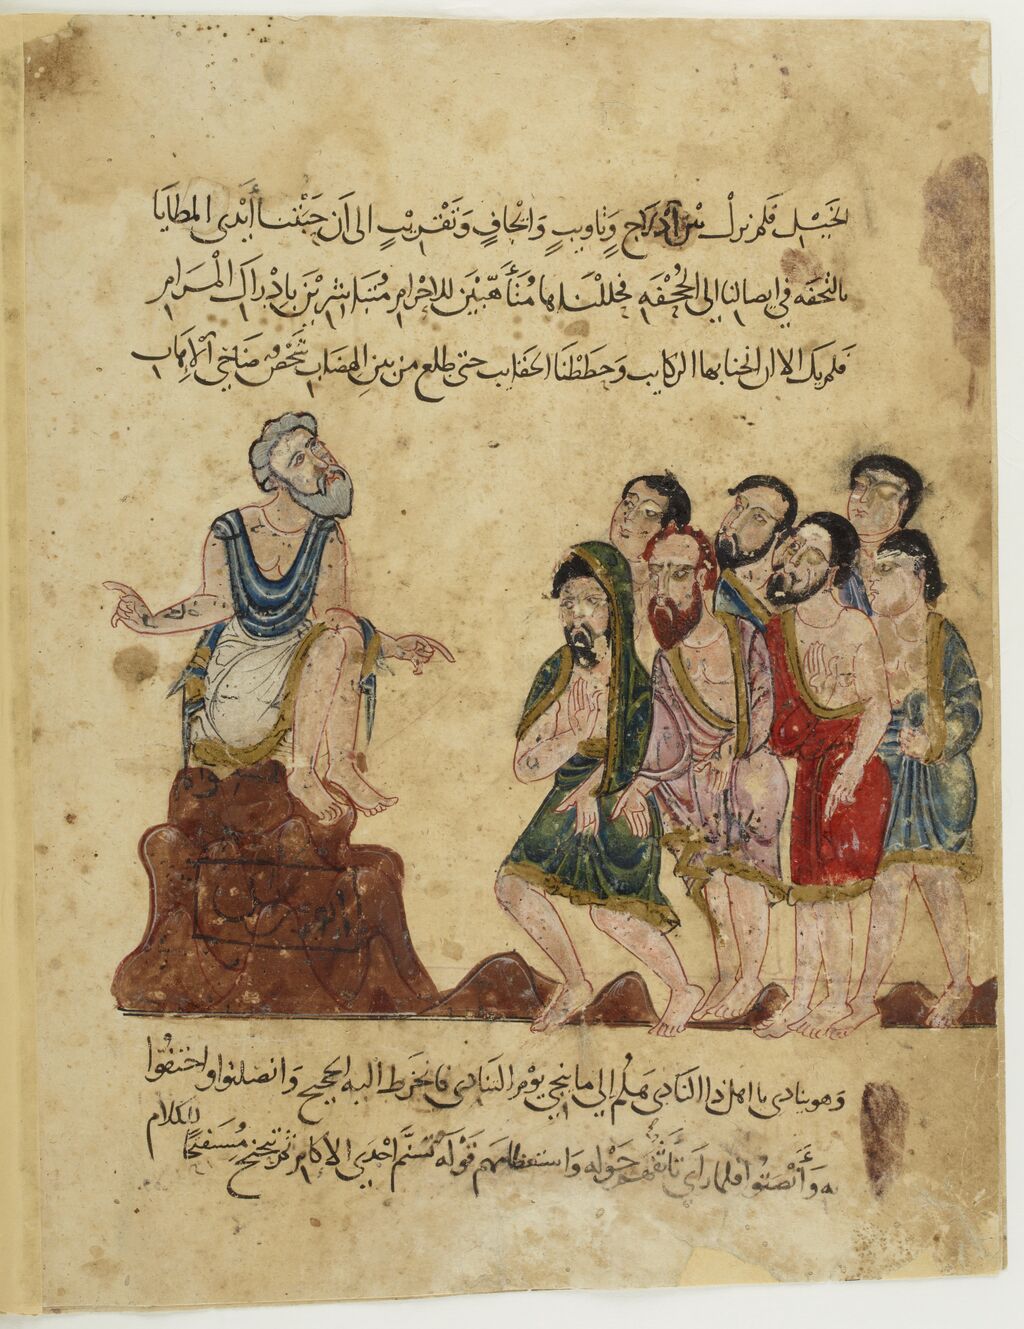 الخَيْل فَلم نزلْ بَيْنَ إدْلاج وَتاويبٍ وَايْجافٍ وَتَقْرِيْبٍ الى اَن حَبَتْنا أيْدى المطايَا
بالتحفَه في ايصالنا الي الجُحْفَه فحللْناها مُتَأهّبيْنَ للاِحْرام مُتَباشِريْنَ باِدْراكَ الْمَرام
فلم يك الا ان انخنا بها الركايب وَحَططْنَا الحقايب حتى طلع من بين الهضاب شَخْصٌ ضَاحي الاِهاب
وَهو ينادى يا اهل ذا النادى هَلُم الي ما ينجي يوم التنادى فانخرط اليه الحجيج وَانصلتوا واحتفوا
به وَأنْصَتُوا فلما رَاي تَأثّفَهم حَوْله وَاستعظامهم قَوْله تسنَّم اِحْدَي الاكام ثم تنحنح مُسْتفتحًا للكلام